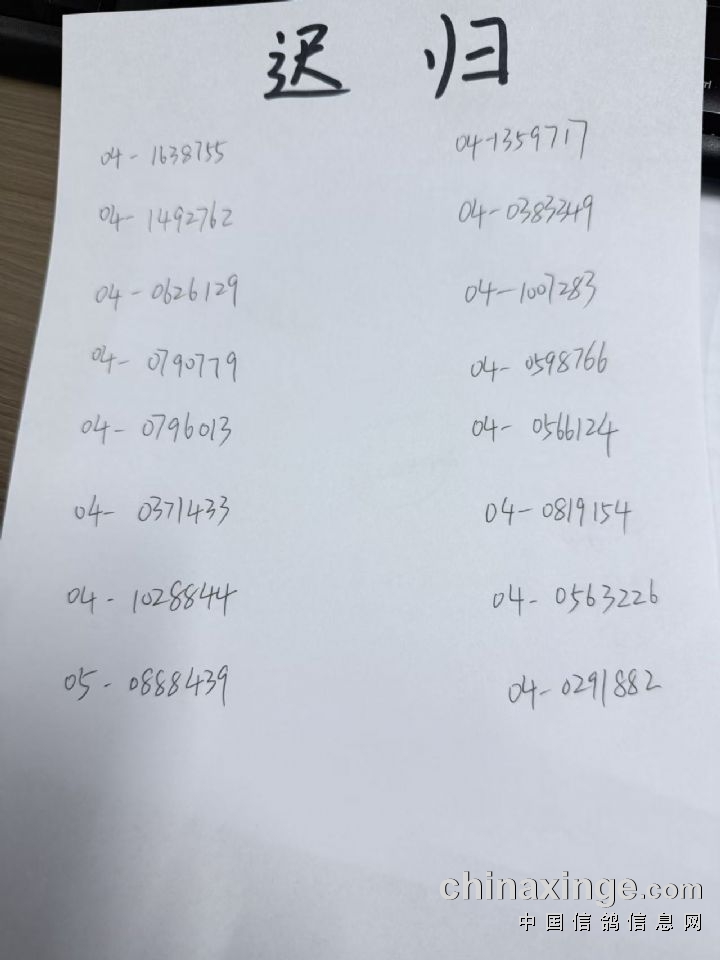 迟 归
04-1638755 04-1359717
04-1492762 04-0383349
04-0626129 04-1007283
04-0790779 04-0598766
04-0796013 04-0566124
04-0371433 04-0819154
04-1028844 04-0563226
05-0888439 04-0291882
chinaxinge.com
中国信鸽信息网